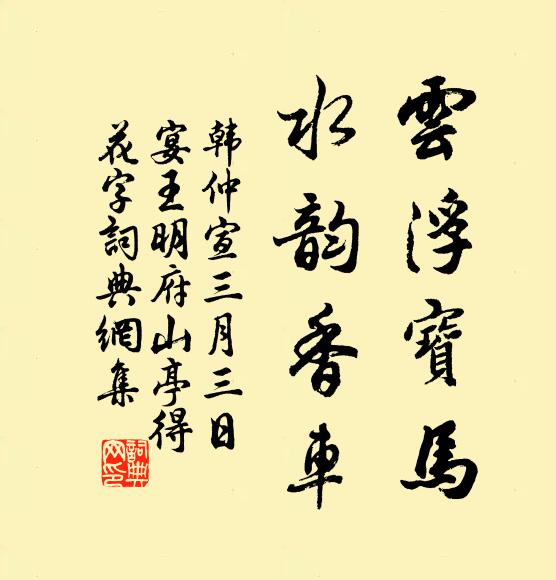 雲浮寶馬
水韵香車
韩仲宣三月三日
宴王明府山亭得
花字詞典網集
詞典
网印